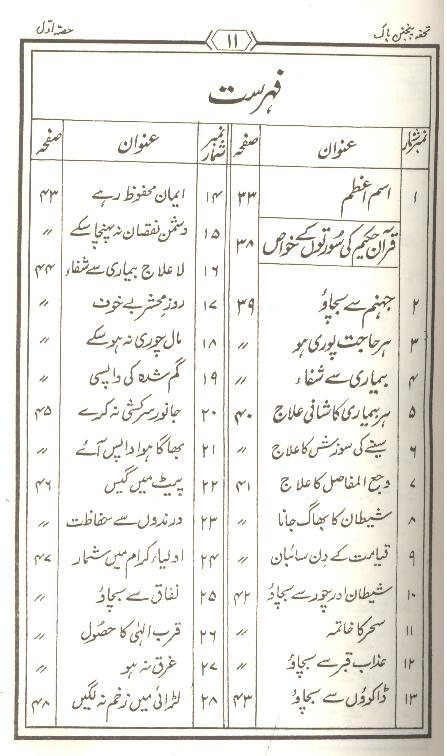 تحفہ پنجتن پاک ۱۱ حصہ اوّل
فہرست
نمبر شمار عنوان صفحہ
۱ اسم اعظم ۳۳
قرآن حکیم کی سُورتوں کے خواص ۳۸
۲ جہنم سے بچاؤ ۳۹
۳ ہر حاجت پوری ہو 〃
۴ بیماری سے شفاء 〃
۵ ہر بیماری کا شافی علاج ۴۰
۶ سینے کی سوزش کا علاج 〃
۷ وجع المفاصل کا علاج ۴۱
۸ شیطان کا بھاگ جانا 〃
۹ قیامت کے دن سائبان 〃
۱۰ شیطان اور چور سے بچاؤ ۴۲
۱۱ سحر کا خاتمہ 〃
۱۲ عذاب قبر سے بچاؤ 〃
۱۳ ڈاکوؤں سے بچاؤ ۴۳
نمبر شمار عنوان صفحہ
۱۴ ایمان محفوظ رہے ۴۳
۱۵ دشمن نقصان نہ پہنچا سکے 〃
۱۶ لاعلاج بیماری سے شفاء ۴۴
۱۷ روزِ محشر بے خوف 〃
۱۸ مال چوری نہ ہو سکے 〃
۱۹ گم شدہ کی واپسی 〃
۲۰ جانور سرکشی نہ کرے ۴۵
۲۱ بھاگا ہوا واپس آئے 〃
۲۲ پیٹ میں گیس ۴۶
۲۳ درندوں سے حفاظت 〃
۲۴ اولیاء کرام میں شمار ۴۷
۲۵ نفاق سے بچاؤ 〃
۲۶ قرب الٰہی کا حصُول 〃
۲۷ غرق نہ ہو 〃
۲۸ لڑائی میں زخم نہ لگیں ۴۸